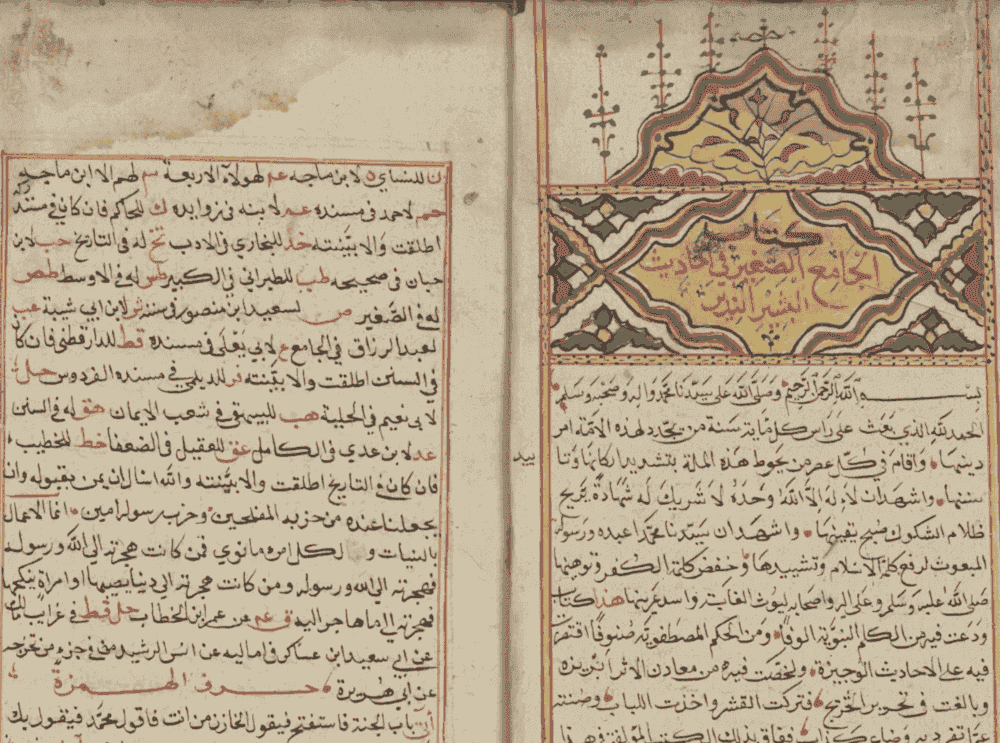 كتاب
الجامع الصغير في احاديث
البشير النذير
بسم الله الرحمن الرحيم وصلى الله على سيدنا محمد واله وصحبه وسلم
الحمد لله الذي بعث على راس كل ماية سنة من يجدد لهذه الامة امر
دينها واقام في كل عصر من يحوط هذه الملة بتشييد اركانها وتا
سننها واشهد ان لا اله الا الله وحده لا شريك له شهادة يزيح
ظلام الشكوك صبح يقينها واشهد ان سيدنا محمدا عبده ورسوله
المبعوث لرفع كلمة الاسلام وتشييدها وخفض كلمة الكفر وتوهينها
صلى الله عليه وسلم وعلى اله واصحابه ليوث الغابة واسد عرينها هذا كتاب
ودعت فيه من الكلم النبوية الوفا ومن الحكم المصطفوية صنوفا اقتصرت
فيه على الاحاديث الوجيزة ولخصت فيه من معادن الاثر ابريزه
وبالغت في تحرير التخريج فتركت القشر واخذت اللباب وصنته
عما تفرد به وضاع كذاب ففاق بذلك الكتب المولفة
ييد
ن للنساي ه لابن ماجه عم لهولاء الاربعة سم لهم الا ابن ماجه
حم لاحمد في مسنده عم لابنه في زوايده ك للحاكم فان كان في مستدركه
اطلقت والا بينته خد للبخاري في الادب تخ له في التاريخ حب لابن
حبان في صحيحه طب للطبراني في الكبير طس له في الاوسط طص
له في الصغير ص لسعيد ابن منصور في سننه ش لابن ابي شيبة عب
لعبد الرزاق في الجامع ع لابي يعلى في مسنده قط للدارقطني فان كان
في السنن اطلقت والا بينته فر للديلمي في مسند الفردوس حل
لابي نعيم في الحلية هب للبيهقي في شعب الايمان هق له في السنن
عد لابن عدي في الكامل عق للعقيلي في الضعفا خط للخطيب
فان كان في التاريخ اطلقت والا بينته والله اسال ان يمن بقبوله وان
يجعلنا عنده من حزبه المفلحين وحزب رسوله امين انما الاعمال
بالنيات و لكل امرء ما نوى فمن كانت هجرته الى الله ورسوله
فهجرته الى الله ورسوله ومن كانت هجرته الى دنيا يصيبها او امراة ينكحها
فهجرته الى ما هاجر اليه ق عم من عمر ابن الخطاب حل قط في غرايب مالك
عن ابي سعيد ابن عساكر في اماليه عن انس الرشيد في جزء من تخريجه
عن ابي هريرة حرف الهمزة
آتي باب الجنة فاستفتح فيقول الخازن من انت فاقول محمد فيقول بك